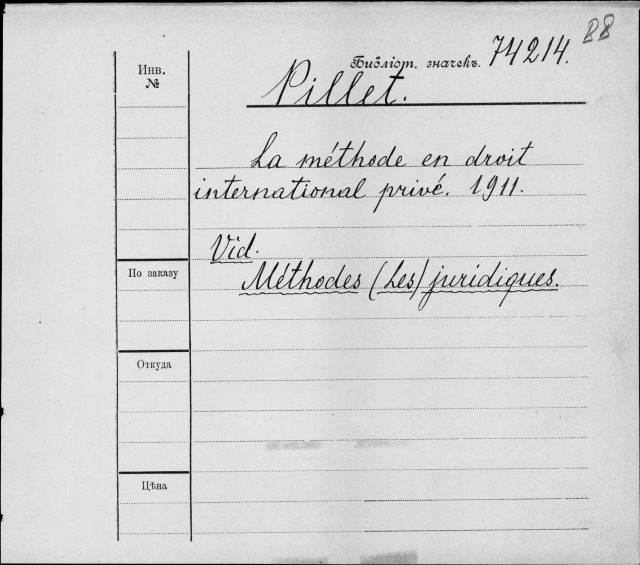 88
Библіот. значекъ. 74214.
Инв.
№
Pillet.
La méthode en droit
international privé. 1911.
Vid.
Méthodes (Les) juridiques.
По заказу
Откуда
Цѣна